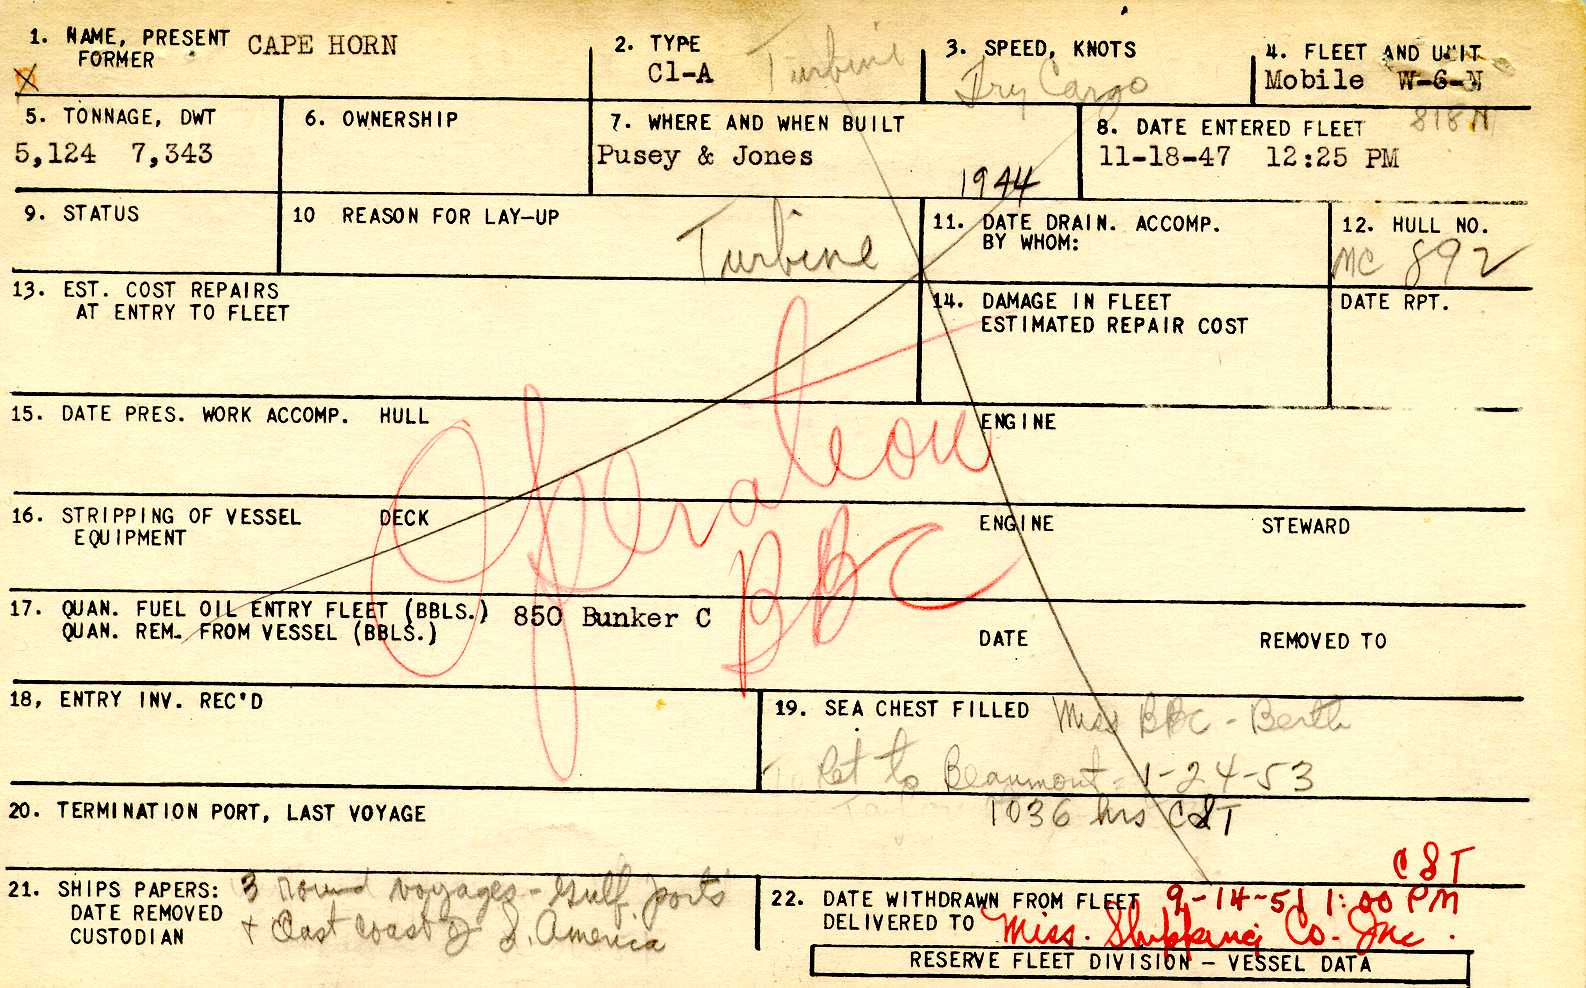 1. NAME, PRESENT CAPE HORN
FORMER
X
2. TYPE
C1-A Turbine
3. SPEED, KNOTS
Dry Cargo
4. FLEET AND UNIT
Mobile W-6-N
818 N
5. TONNAGE, DWT
5,124 7,343
6. OWNERSHIP
7. WHERE AND WHEN BUILT
Pusey & Jones
1944
8. DATE ENTERED FLEET
11-18-47 12:25 PM
9. STATUS
10 REASON FOR LAY-UP
Turbine
11. DATE DRAIN. ACCOMP.
BY WHOM:
12. HULL NO.
MC 892
13. EST. COST REPAIRS
AT ENTRY TO FLEET
14. DAMAGE IN FLEET
ESTIMATED REPAIR COST
DATE RPT.
Operation
BBC
15. DATE PRES. WORK ACCOMP. HULL
ENGINE
16. STRIPPING OF VESSEL DECK
EQUIPMENT
ENGINE STEWARD
17. QUAN. FUEL OIL ENTRY FLEET (BBLS.) 850 Bunker C
QUAN. REM. FROM VESSEL (BBLS.)
DATE REMOVED TO
18, ENTRY INV. REC'D
19. SEA CHEST FILLED Miss BBC - Berth
Ret to Beaumont - 1-24-53
1036 hrs CST
20. TERMINATION PORT, LAST VOYAGE
21. SHIPS PAPERS: 3 round voyages - Gulf ports
DATE REMOVED + East Coast of S. America
CUSTODIAN
CST
22. DATE WITHDRAWN FROM FLEET 9-14-51 1:00 PM
DELIVERED TO Miss. Shipping Co. Inc.
RESERVE FLEET DIVISION — VESSEL DATA